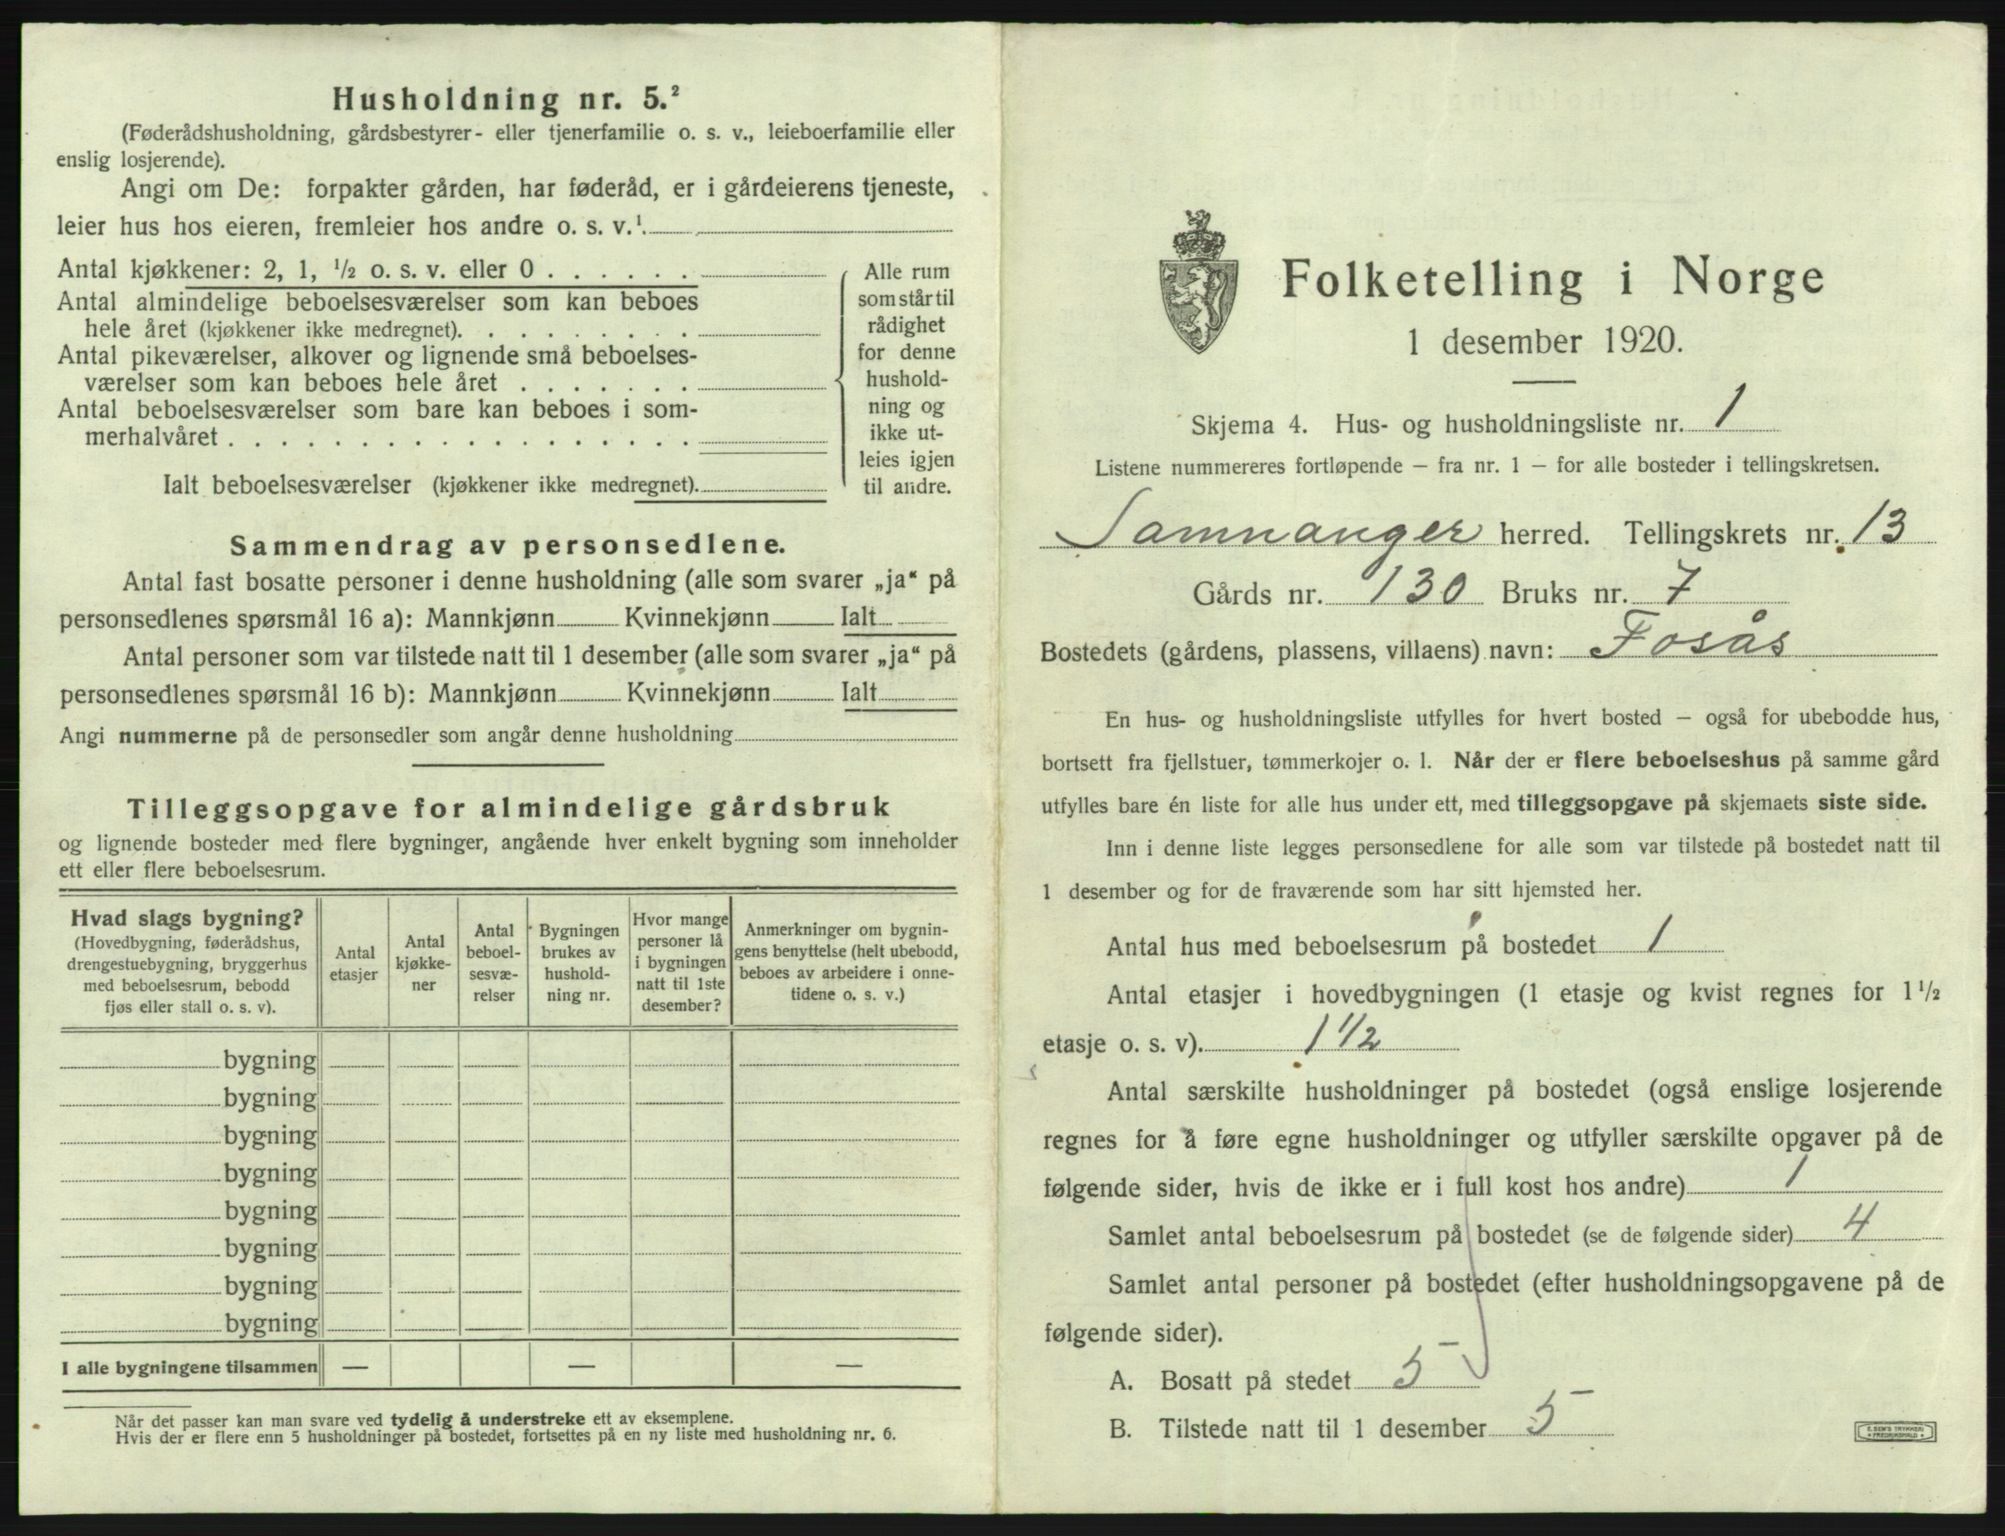 Husholdning nr. 5.²
(Føderådshusholdning, gårdsbestyrer- eller tjenerfamilie o. s. v., leieboerfamilie eller
enslig losjerende).
Angi om De: forpakter gården, har føderåd, er i gårdeierens tjeneste,
leier hus hos eieren, fremleier hos andre o. s. v.¹.
Antal kjøkkener: 2, 1, ½ o. s. v. eller 0 . . . . . .
Antal almindelige beboelsesværelser som kan beboes
hele året (kjøkkener ikke medregnet). . . . . . . . .
Antal pikeværelser, alkover og lignende små beboelses-
værelser som kan beboes hele året . . . . . . .
Antal beboelsesværelser som bare kan beboes i som-
merhalvåret . . . . . . . . . . . . . . . . . .
Ialt beboelsesværelser (kjøkkener ikke medregnet).
Alle rum
som står til
rådighet
for denne
hushold-
ning og
ikke ut-
leies igjen
til andre.
Sammendrag av personsedlene.
Antal fast bosatte personer i denne husholdning (alle som svarer „ja“ på
personsedlenes spørsmål 16 a): Mannkjønn Kvinnekjønn Ialt
Antal personer som var tilstede natt til 1 desember (alle som svarer „ja“ på
personsedlenes spørsmål 16 b): Mannkjønn Kvinnekjønn Ialt
Angi nummerne på de personsedler som angår denne husholdning
Tilleggsopgave for almindelige gårdsbruk
og lignende bosteder med flere bygninger, angående hver enkelt bygning som inneholder
ett eller flere beboelsesrum.
Hvad slags bygning?
(Hovedbygning, føderådshus,
drengestuebygning, bryggerhus
med beboelsesrum, bebodd
fjøs eller stall o. s. v).
Antal
etasjer
Antal
kjøkke-
ner
Antal
beboel-
sesvæ-
relser
Bygningen
brukes av
hushold-
ning nr.
Hvor mange
personer lå
i bygningen
natt til 1ste
desember?
Anmerkninger om bygnin-
gens benyttelse (helt ubebodd,
beboes av arbeidere i onne-
tidene o. s. v.)
bygning
bygning
bygning
bygning
bygning
bygning
bygning
bygning
I alle bygningene tilsammen — — —
Når det passer kan man svare ved tydelig å understreke ett av eksemplene.
Hvis der er flere enn 5 husholdninger på bostedet, fortsettes på en ny liste med husholdning nr. 6.
Folketelling i Norge
1 desember 1920.
Skjema 4. Hus- og husholdningsliste nr. 1
Listene nummereres fortløpende — fra nr. 1 — for alle bosteder i tellingskretsen.
Samnanger herred. Tellingskrets nr. 13
Gårds nr. 130 Bruks nr. 7
Bostedets (gårdens, plassens, villaens) navn: Fosås
En hus- og husholdningsliste utfylles for hvert bosted — også for ubebodde hus,
bortsett fra fjellstuer, tømmerkojer o. l. Når der er flere beboelseshus på samme gård
utfylles bare én liste for alle hus under ett, med tilleggsopgave på skjemaets siste side.
Inn i denne liste legges personsedlene for alle som var tilstede på bostedet natt til
1 desember og for de fraværende som har sitt hjemsted her.
Antal hus med beboelsesrum på bostedet 1
Antal etasjer i hovedbygningen (1 etasje og kvist regnes for 1½
etasje o. s. v). 1½
Antal særskilte husholdninger på bostedet (også enslige losjerende
regnes for å føre egne husholdninger og utfyller særskilte opgaver på de
følgende sider, hvis de ikke er i full kost hos andre) 1
Samlet antal beboelsesrum på bostedet (se de følgende sider) 4
Samlet antal personer på bostedet (efter husholdningsopgavene på de
følgende sider).
A. Bosatt på stedet 5
B. Tilstede natt til 1 desember 5